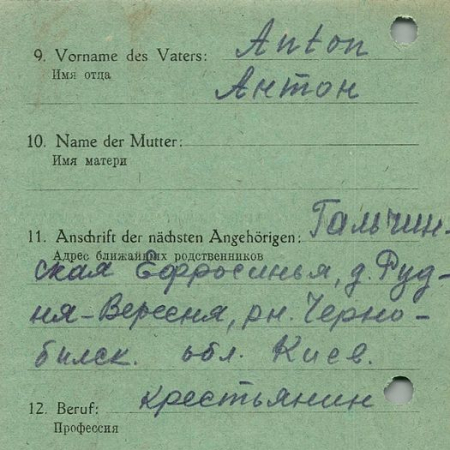 9. Vorname des Vaters: Anton
Имя отца Антон
10. Name der Mutter:
Имя матери
11. Anschrift der nächsten Angehörigen: Гальчин-
Адрес ближайших родственников
ская Ефросинья, д. Руд-
ня-Вересня, рн. Черно-
билск. обл. Киев.
12. Beruf: крестьянин
Профессия